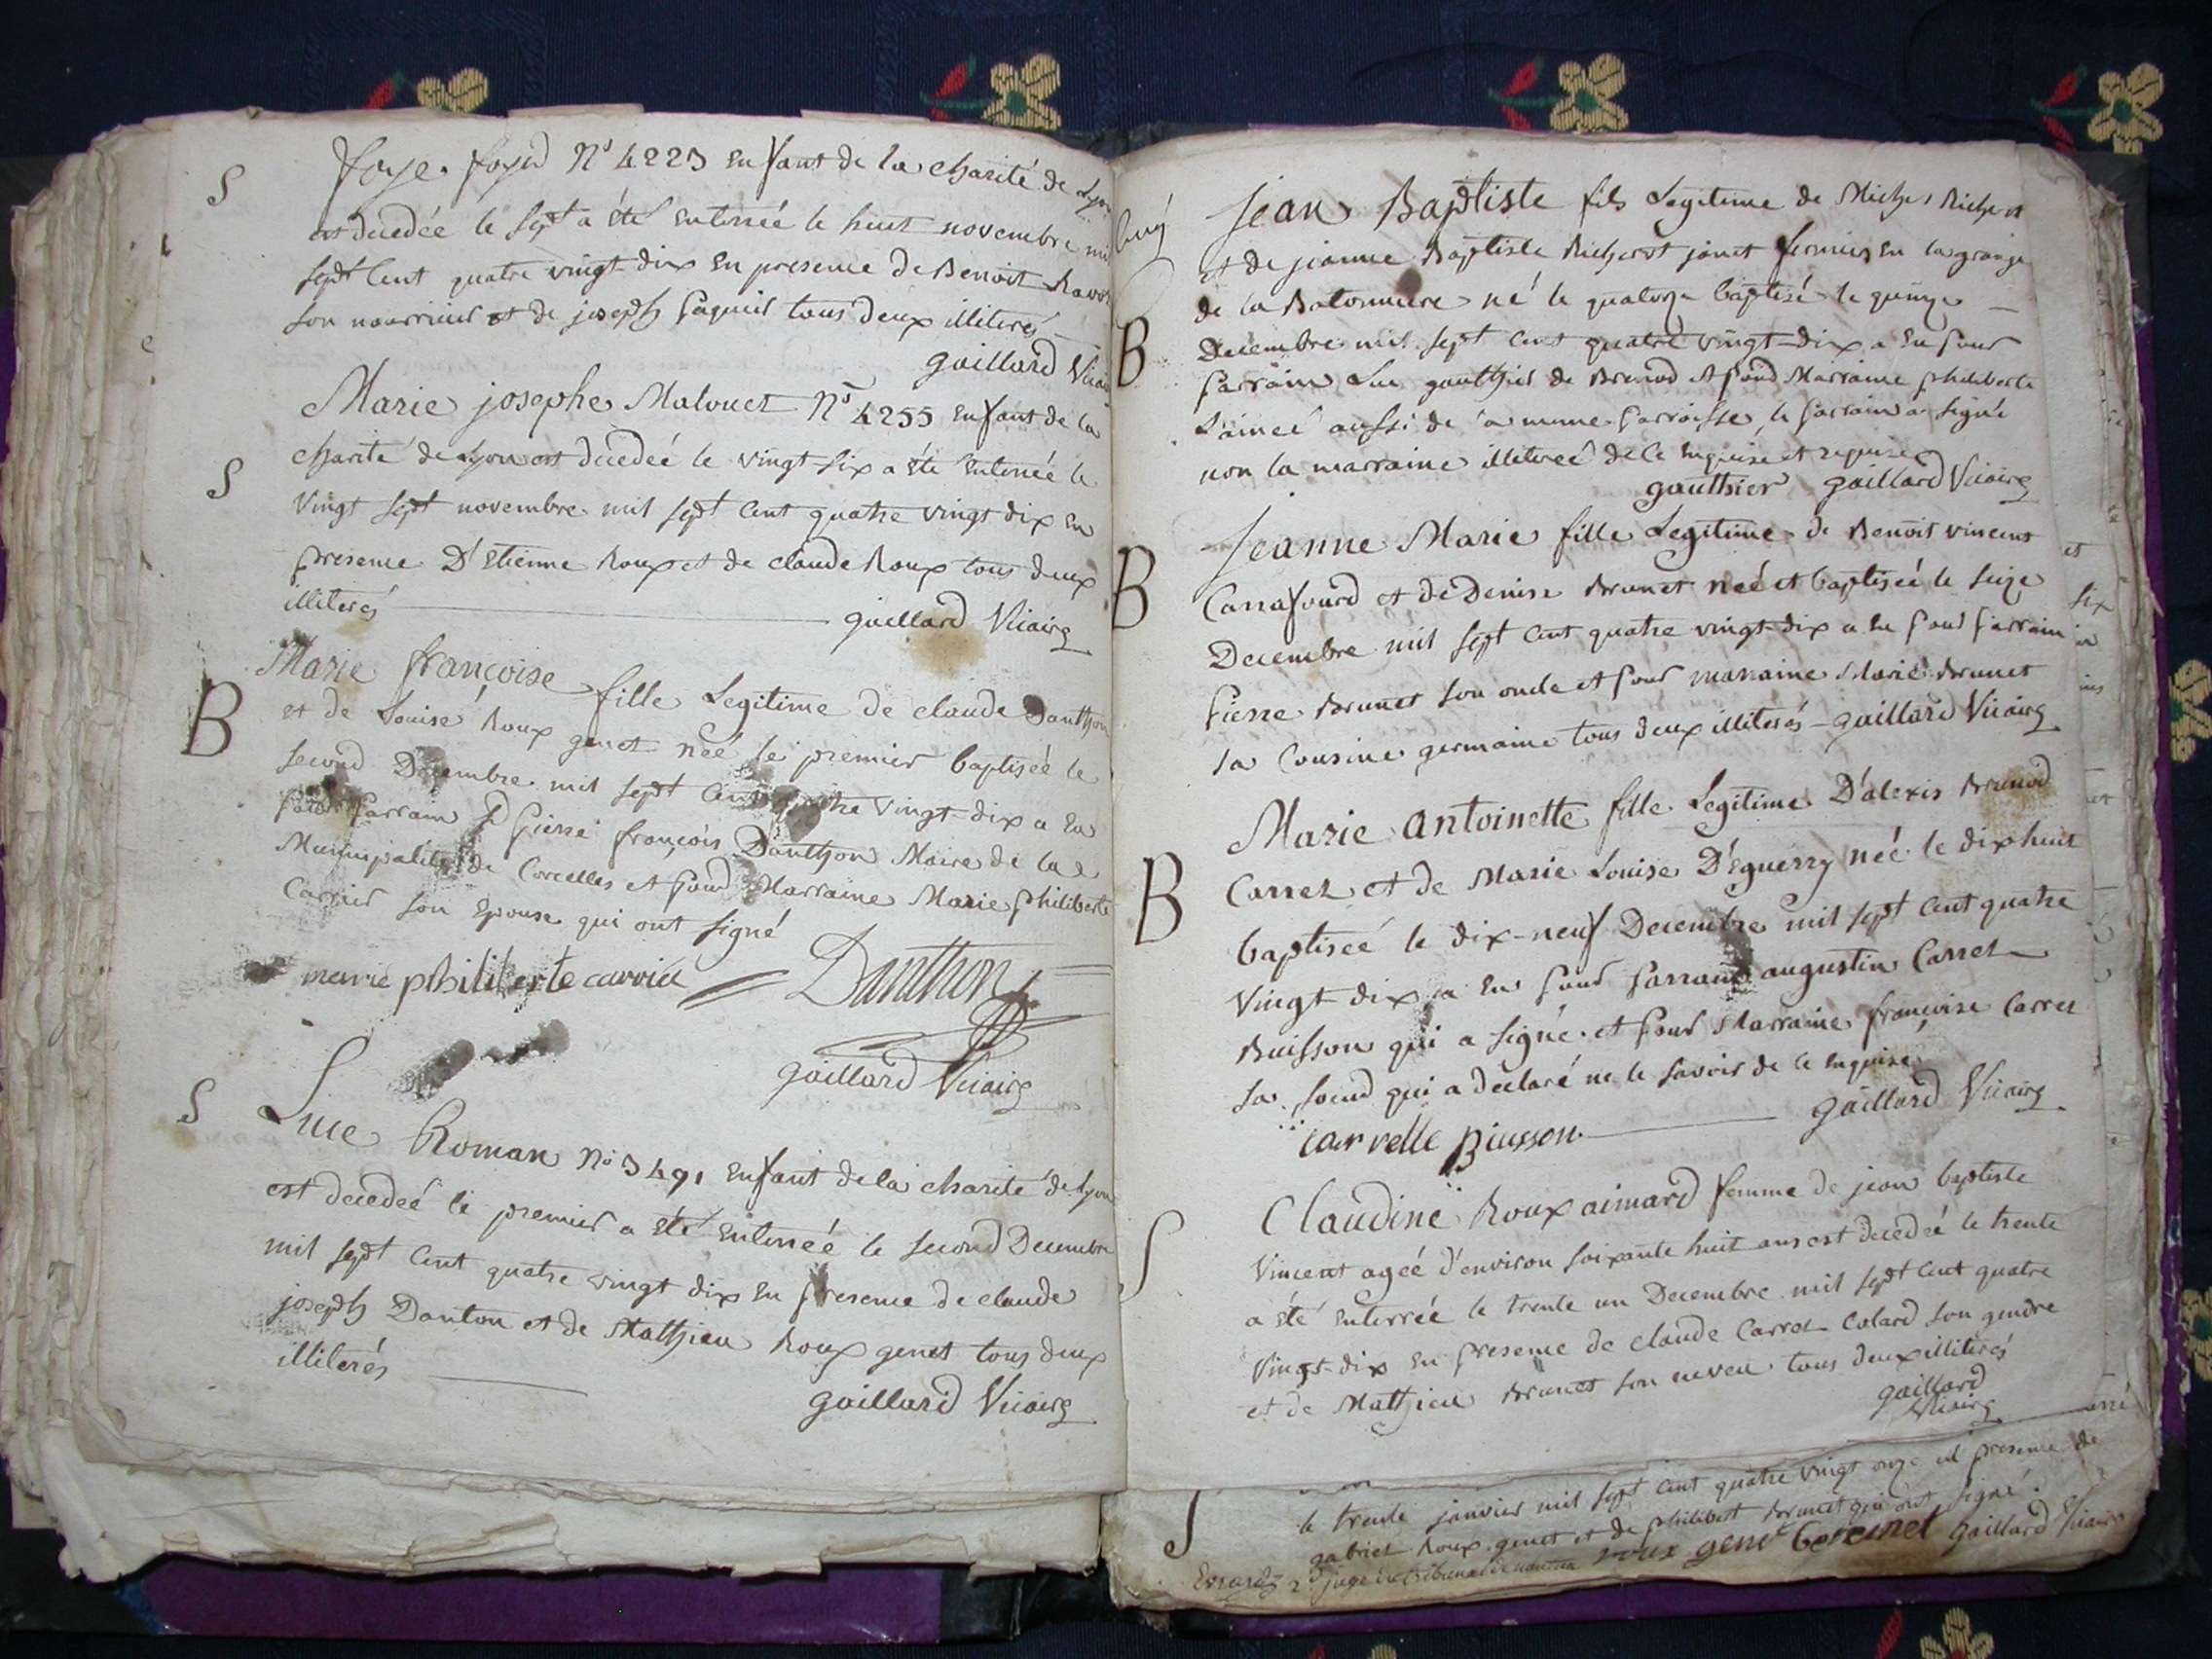 S
N° 4223 enfant de la charité de Lyon
est decedée le sept a été enterrée le huit novembre mil
sept cent quatre vingt-dix en presence de Benoit
son nourricier et de joseph tous deux illiterés
gaillard Vicaire
S
Marie josephe Malouet N° 4255 enfant de la
charité de Lyon est decedeé le vingt-six a été enterreé le
vingt sept novembre mil sept cent quatre vingt dix en
presence D'Etienne Roux et de claude Roux tous deux
illiterés
gaillard Vicaire
B
Marie françoise fille Legitime de claude Danthon
et de Louise Roux genet neé le premier baptiseé le
second Decembre mil sept cent quatre vingt-dix a eu
pour parrain Pierre françois Danthon Maire de la
Municipalité de Corcelles et pour Marraine Marie philiberte
Carrier son epouse qui ont signé
marie philiberte carrier Danthon
gaillard Vicaire
S
Luce Roman N° 3491 enfant de la charité de Lyon
est decedeé le premier a été enterreé le second Decembre
mil sept cent quatre vingt dix en presence de claude
joseph Danton et de Mathieu Roux genet tous deux
illiterés
gaillard Vicaire
B
Jean Baptiste fils Legitime de Michel
et de jeanne Baptiste Richerot janet fermier en la grange
de la Batonniere né le quatorze baptisé le quinze
Decembre mil sept cent quatre vingt-dix a eu pour
parrain Luc gauthier de Brenod et pour Marraine philiberte
aussi de la meme parroisse, le parrain a signé
non la marraine illitereé de ce enquise et requise
gauthier gaillard Vicaire
B
Jeanne Marie fille Legitime de Benoit vincent
Carrafourd et de Denise Brunet neé et baptiseé le seize
Decembre mil sept cent quatre vingt-dix a eu pour parrain
Pierre Brunet son oncle et pour marraine Marie Brunet
sa Cousine germaine tous deux illiterés gaillard Vicaire
B
Marie antoinette fille Legitime D'alexis Brunod
Carrel et de Marie Louise D'Eguerry neé le dix huit
baptiseé le dix-neuf Decembre mil sept cent quatre
vingt-dix a eu pour parrain augustin Carrel
Buisson qui a signé et pour Marraine françoise Carrel
sa soeur qui a declaré ne le savoir de ce enquise
gaillard Vicaire
carrelle Buisson
S
Claudine Roux aimard femme de jean baptiste
Vincent ageé d'environ soixante huit ans est decedeé le trente
a été enterrée le trente un Decembre mil sept cent quatre
vingt-dix en presence de claude Carrel Colard son gendre
et de Mathieu Brunet son neveu tous deux illiterés
gaillard
Vicaire
S
le trente janvier mil sept cent quatre vingt onze en presence de
gabriel Roux genet et de philibert Brunet qui ont signé.
roux genet gaillard Vicaire